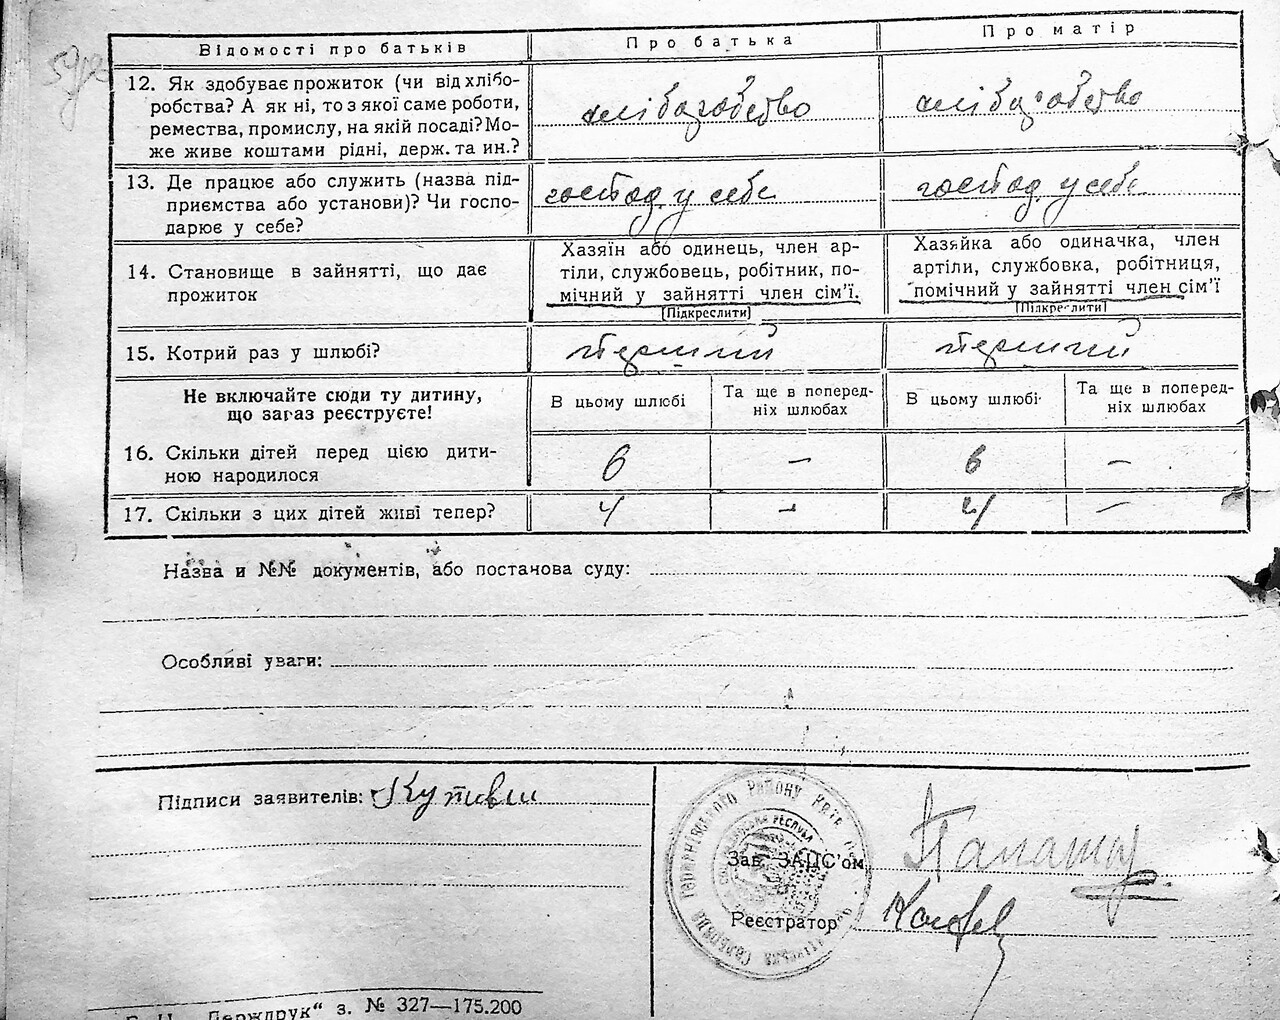 Відомості про батьків
Про батька
Про матір
12. Як здобуває прожиток (чи від хлібо-
робства? А як ні, то з якої саме роботи,
ремества, промислу, на якій посаді? Мо-
же живе коштами рідні, держ. та ин.?
хліборобство
хліборобство
13. Де працює або служить (назва під-
приємства або установи)? Чи госпо-
дарює у себе?
господ у себе
господ у себе
14. Становище в зайнятті, що дає
прожиток
Хазяїн або одинець, член ар-
тіли, службовець, робітник, по-
мічний у зайнятті член сім'ї.
(Підкреслити)
Хазяйка або одиначка, член
артіли, службовка, робітниця,
помічний у зайнятті член сім'ї
(Підкреслити)
15. Котрий раз у шлюбі?
перший
перший
Не включайте сюди ту дитину,
що зараз реєструєте!
В цьому шлюбі
Та ще в поперед-
ніх шлюбах
В цьому шлюбі
Та ще в поперед-
ніх шлюбах
16. Скільки дітей перед цією дити-
ною народилося
6
–
6
–
17. Скільки з цих дітей живі тепер?
4
–
4
–
Назва и №№ документів, або постанова суду:
Особливі уваги:
Підписи заявителів:
Зав. ЗАЦС'ом
Реєстратор
Держдрук" з. № 327—175.200